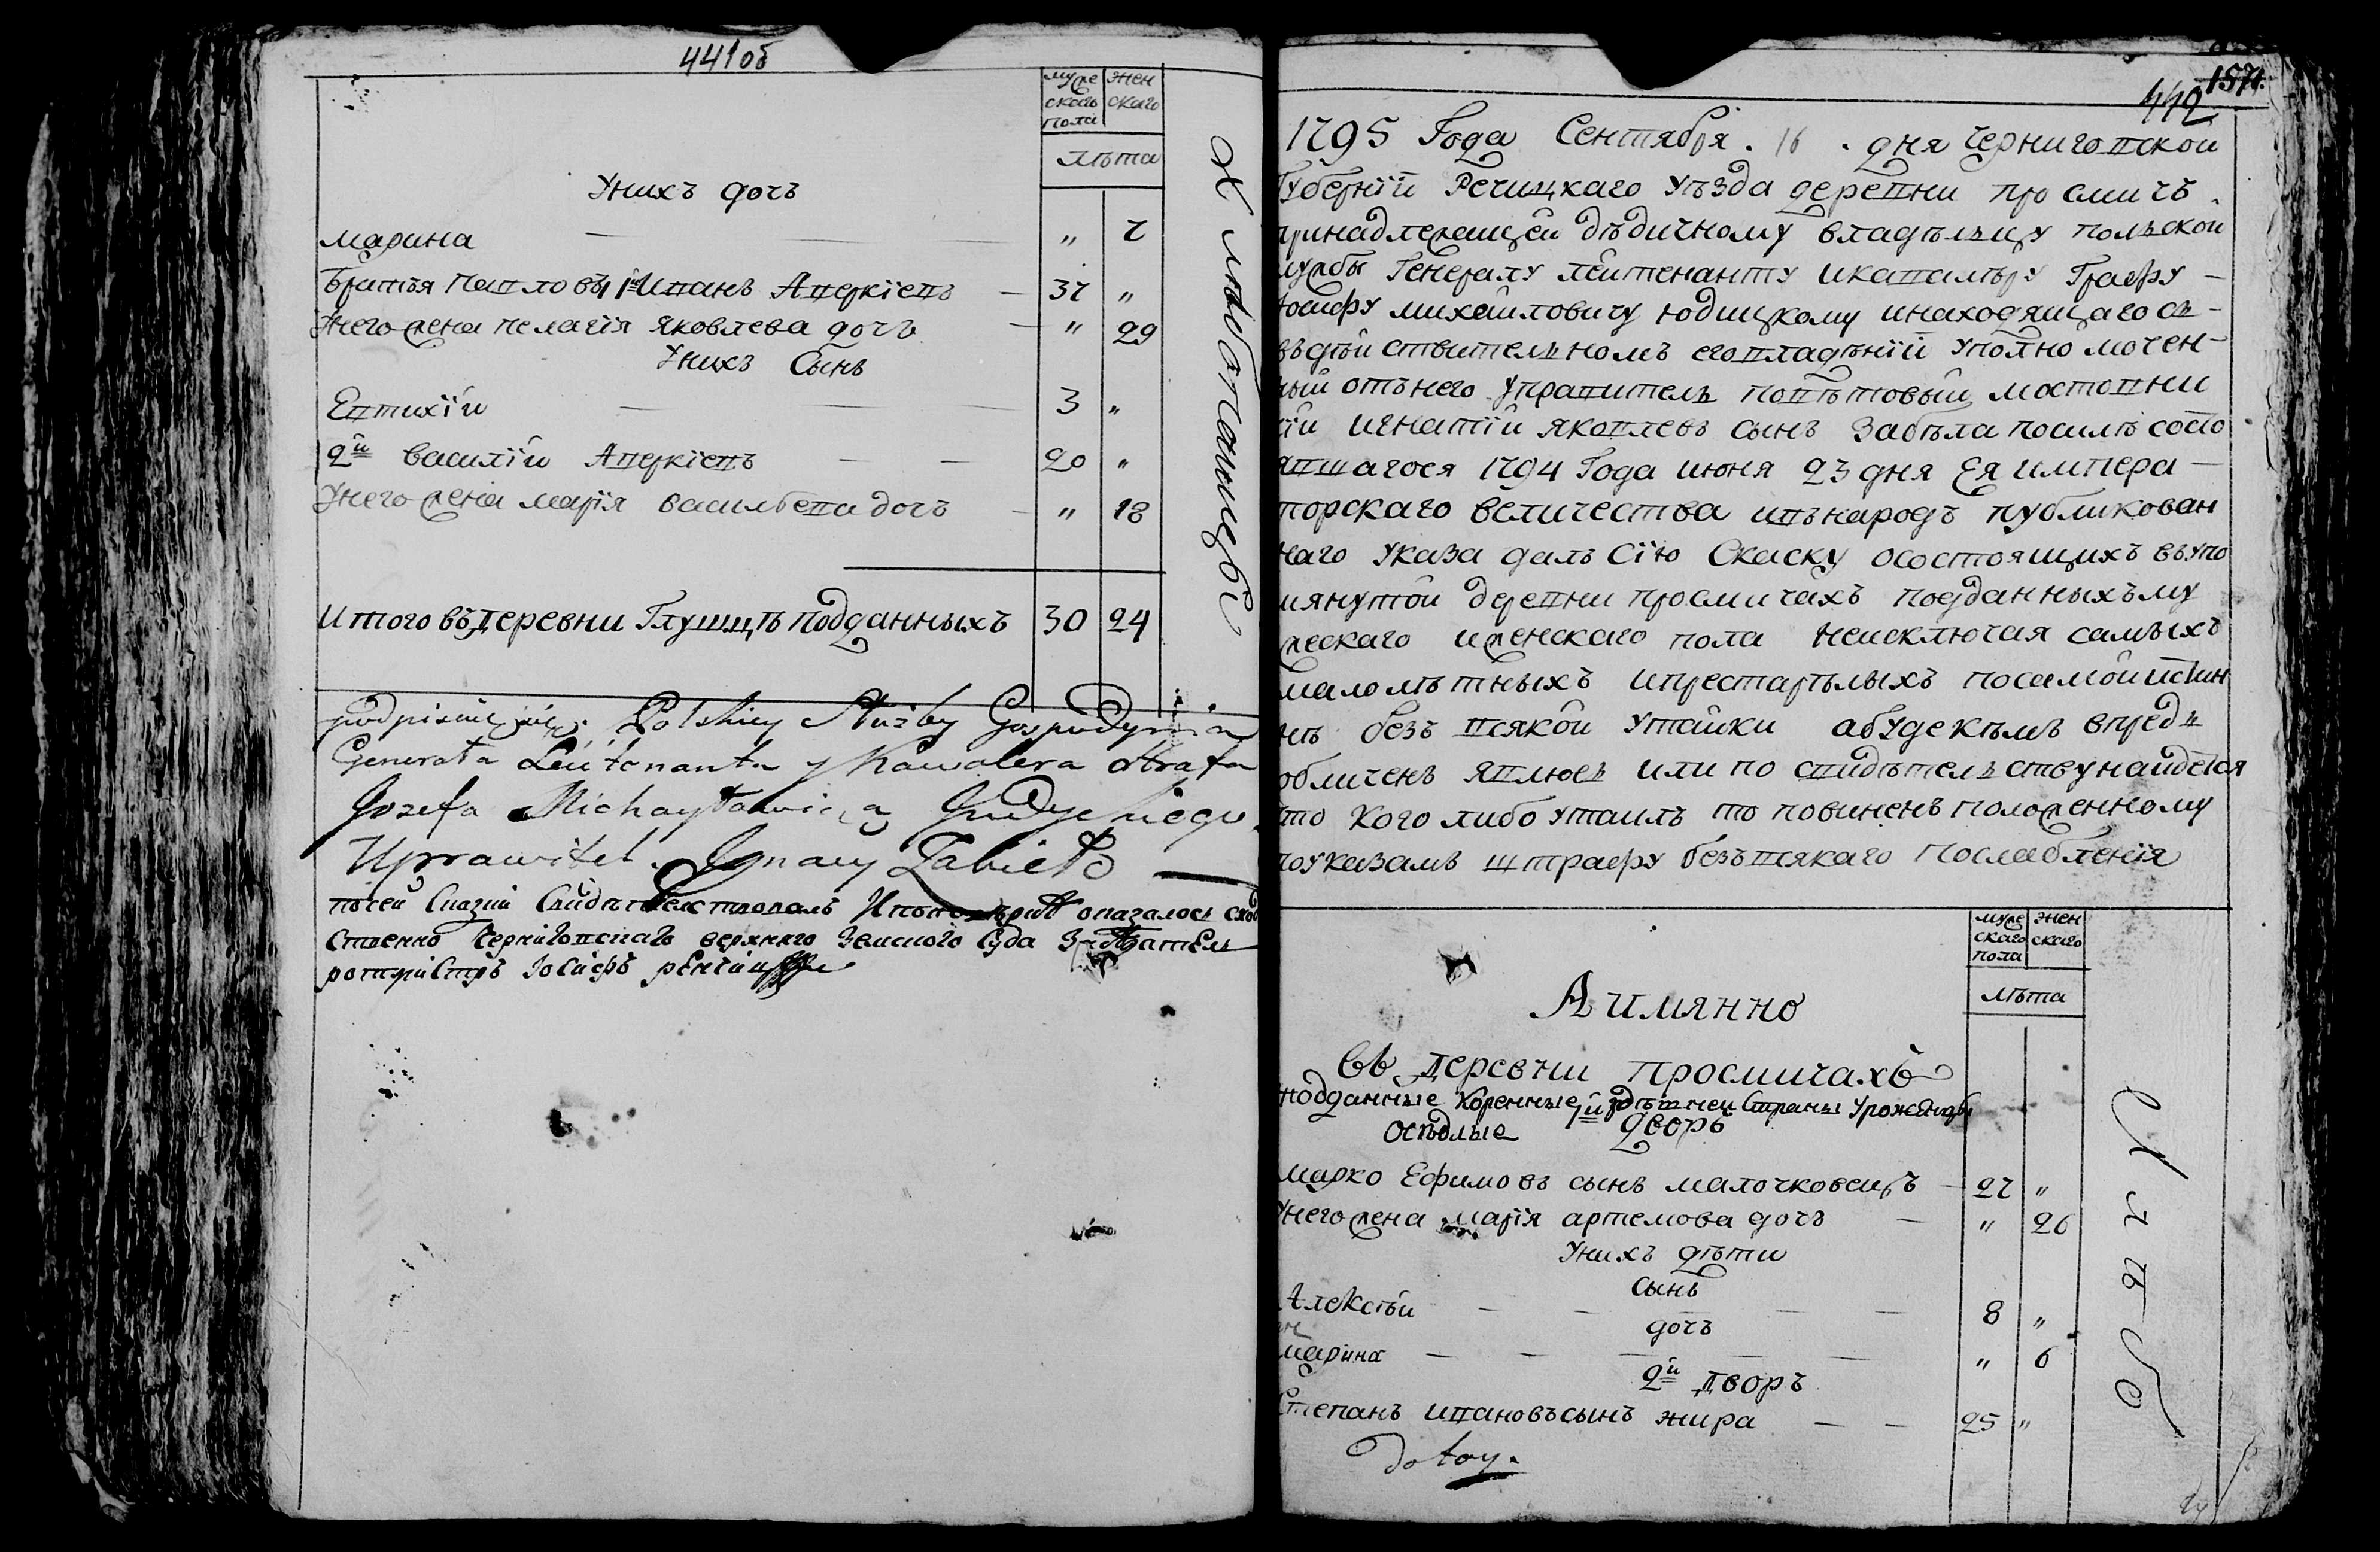 441об
муже ского пола
жен скаго
лѣта
Унихъ дочь
марина — „ 7
Братья павловы 1й Иванъ Аверкіевъ — 37 „
Унего жена пелагія яковлева дочь — „ 29
Унихъ Сынъ
Евтихїй — 3 „
2й василїй Аверкіевъ — — 20 „
Унего жена марія васильева дочь — „ 18
Итого въ деревни Глушцѣ подданныхъ 30 24
podpisuię się. Polskiey Służby
Generała Leütenanta y Kawalera Hrafa
Jozefa Michayłowicza Judyckiego
Uprawitel. Ignacy Zabieło
посей Сказки Свидѣтелствовалъ Ипоповѣрке оказалось
Ственно Черниговскаго верхнего Земского Суда Засѣдатель
ротмистръ Іосифъ
1574.
442
1795 Года Сентября. 16 . дня Черниговской
Губернїй Речицкаго Уѣзда деревни просмичъ.
принадлежащей дѣдичному владѣльцу польской
службы Генералу лейтенанту икавалеру Графу —
Юзефу михайловичу юдицкому инаходящагося —
въдѣйствительномъ еговладѣнїй Уполномочен-
ный отънего Управитель повѣтовый мостовни
чїй игнатїй яковлевъ сынъ Забѣла посилѣ состо
явшагося 1794 Года июня 23 дня Ея импера —
торскаго величества ивънародъ публикован
наго Указа далъ Сїю Скаску осостоящихъ въупо
мянутой деревни просмичахъ подданныхъ му
жескаго иженскаго пола неисключая самыхъ
малолѣтныхъ ипрестарѣлыхъ посамой истин
нѣ безъ всякой Утайки абуде кѣмъ впредь
обличенъ явлюсь или по свидѣтельству найдется
что кого либо Утаилъ то повиненъ положенному
поуказамъ штрафу безъ всякаго послабленія
муже скаго пола
жен скаго
лѣта
А имянно
Въ деревни просмичахъ
подданные Коренные здѣшней Страны Уроженцы
осѣдлые 1й Дворъ
марко Ефимовъ сынъ малочковецъ — 27 „
Унего жена марія артемова дочь — „ 26
Унихъ дѣти
Сынъ
Алексѣй — — — — 8 „
дочь
марина — — — — „ 6
2й дворъ
Степанъ ивановъ сынъ жира — — 25 „